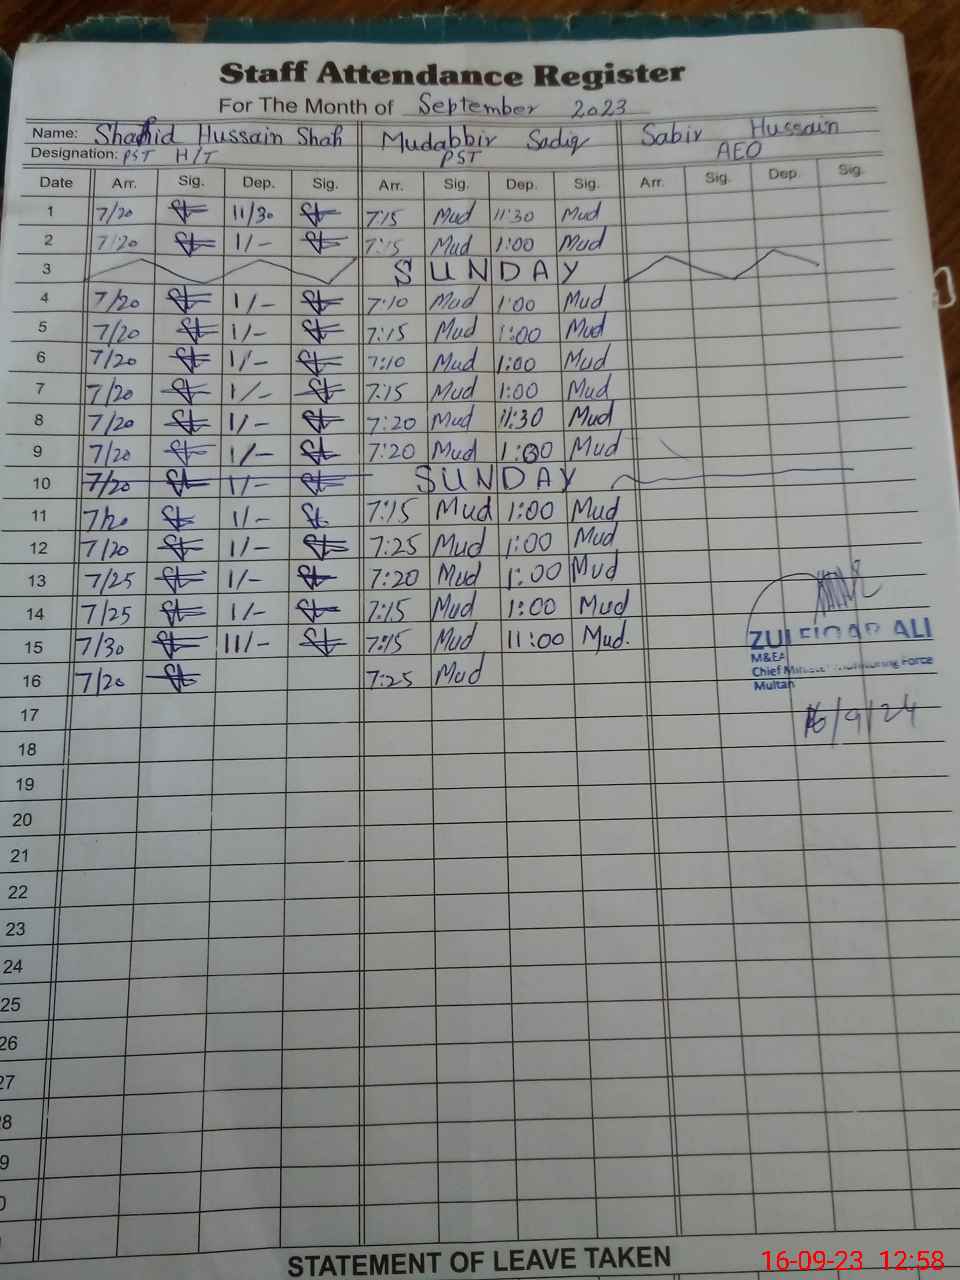 Staff Attendance Register
For The Month of September 2023
Name: Shahid Hussain Shah Mudabbir Sadiq Sabir Hussain
Designation: PST H/T PST AEO
Date Arr. Sig. Dep. Sig. Arr. Sig. Dep. Sig. Arr. Sig. Dep. Sig.
1 7/20 11/30 7:15 Mud 11:30 Mud
2 7/20 1/- 7:15 Mud 1:00 Mud
3 SUNDAY
4 7/20 1/- 7:10 Mud 1:00 Mud
5 7/20 1/- 7:15 Mud 1:00 Mud
6 7/20 1/- 7:10 Mud 1:00 Mud
7 7/20 1/- 7:15 Mud 1:00 Mud
8 7/20 1/- 7:20 Mud 11:30 Mud
9 7/20 1/- 7:20 Mud 1:00 Mud
10 7/20 1/- SUNDAY
11 7/20 1/- 7:15 Mud 1:00 Mud
12 7/20 1/- 7:25 Mud 1:00 Mud
13 7/25 1/- 7:20 Mud 1:00 Mud
14 7/25 1/- 7:15 Mud 1:00 Mud
15 7/30 11/- 7:15 Mud 11:00 Mud.
16 7/20 7:25 Mud
ZULFIQAR ALI
M&EA
Chief Minister Monitoring Force
Multan
16/9/24
17
18
19
20
21
22
23
24
25
26
27
28
9
0
STATEMENT OF LEAVE TAKEN
16-09-23 12:58